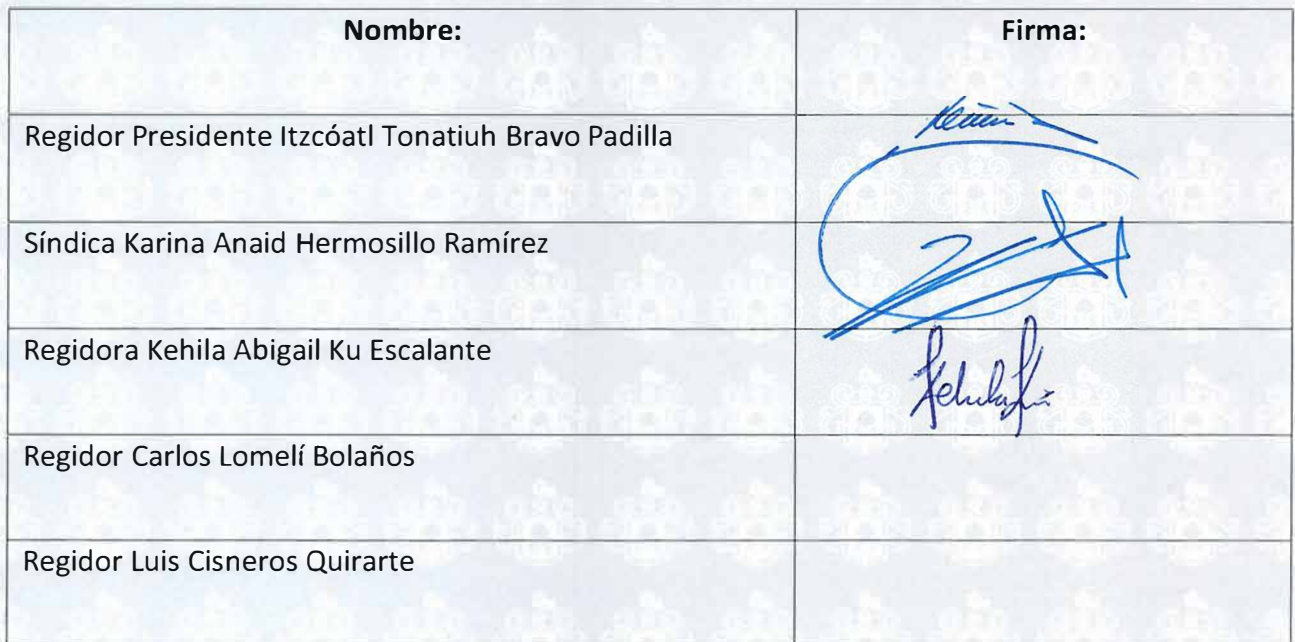 Nombre: Firma:
Regidor Presidente Itzcóatl Tonatiuh Bravo Padilla
Síndica Karina Anaid Hermosillo Ramírez
Regidora Kehila Abigail Ku Escalante
Regidor Carlos Lomelí Bolaños
Regidor Luis Cisneros Quirarte